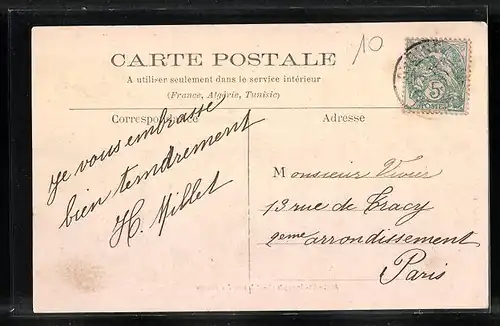 CARTE POSTALE
10
A utiliser seulement dans le service intérieur
(France, Algérie, Tunisie)
5c
POSTES
Correspondance
Adresse
Je vous embrasse
bien tendrement
H. Millet
Monsieur Vivier
13 rue de Tracy
2eme arrondissement
Paris